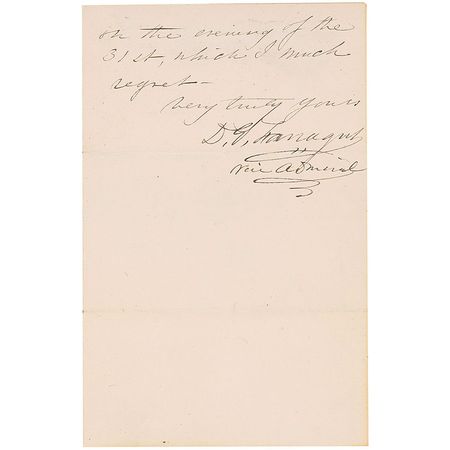 on the evening of the
31st, which I much
regret—
Very truly yours
D. G. Farragut
Vice Admiral